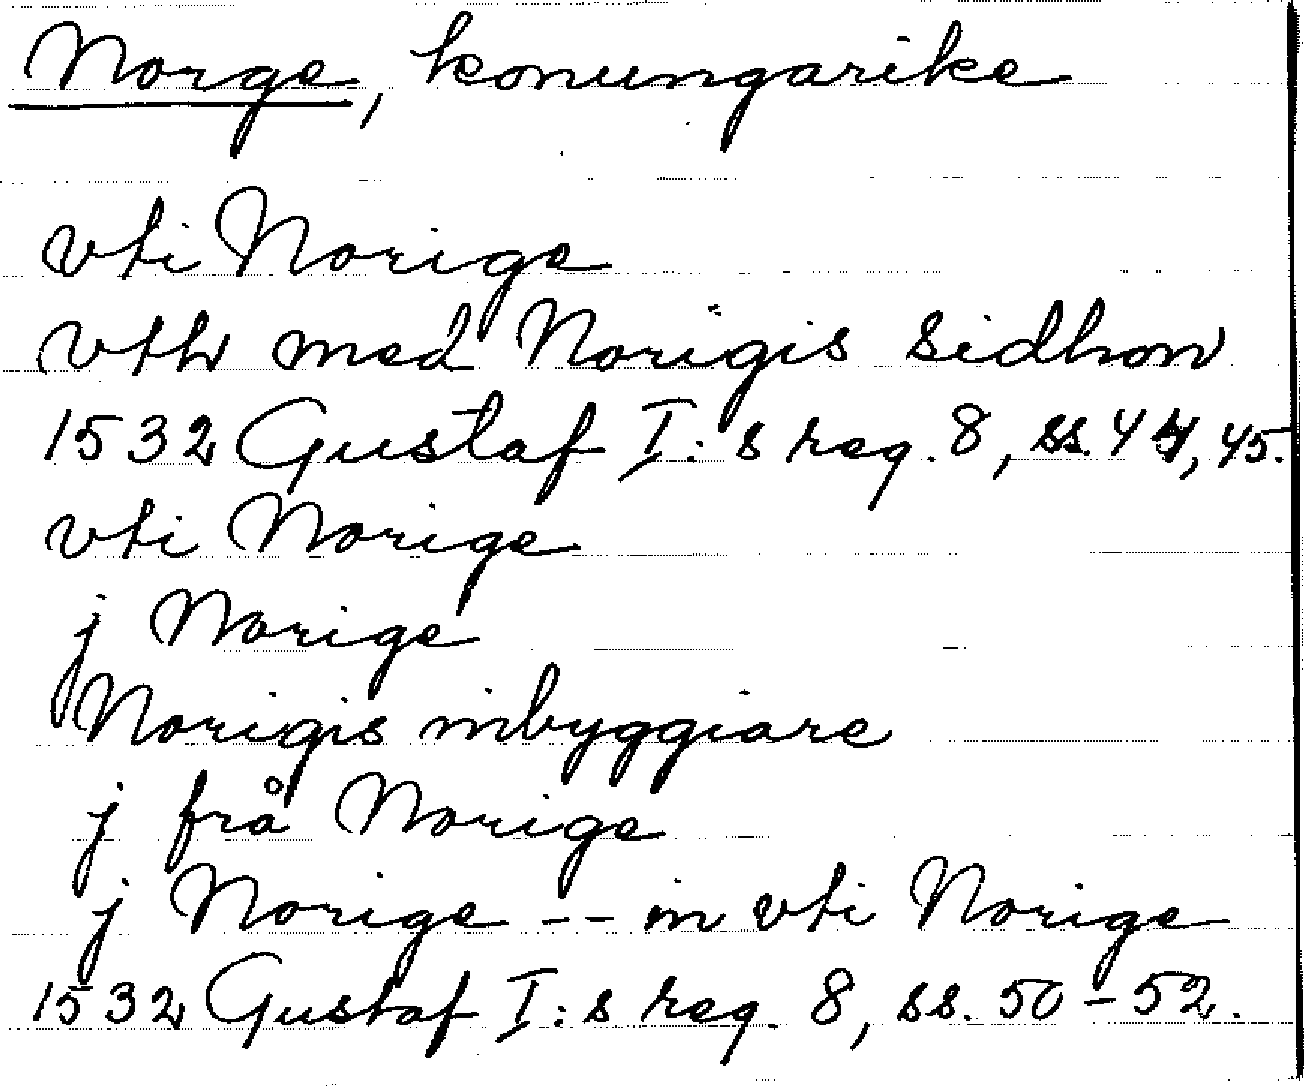 Norge, konungarike
vti Norige
vth med Norigis sidhon
1532 Gustaf I:s reg. 8, ss. 44, 45.
vti Norige
j Norige
Norigis inbyggiare
j från Norige
j Norige -- in vti Norige
1532 Gustaf I:s reg. 8, ss. 50-52.